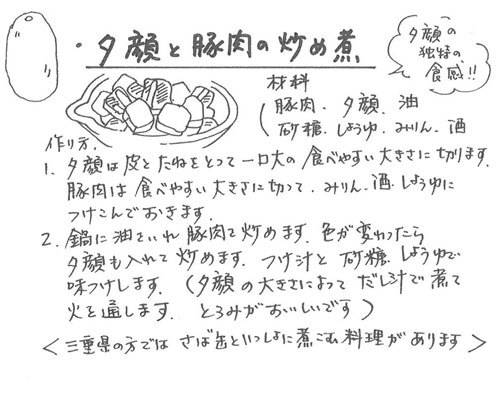 ・夕顔と豚肉の炒め煮
夕顔の
独特の
食感!!
材料
豚肉、夕顔、油
砂糖、しょうゆ、みりん、酒
作り方
1. 夕顔は皮とたねをとって一口大の食べやすい大きさに切ります。
豚肉は食べやすい大きさに切って、みりん、酒、しょうゆに
つけこんでおきます。
2. 鍋に油をいれ豚肉を炒めます。色が変わったら
夕顔も入れて炒めます。つけ汁と砂糖、しょうゆで
味つけします。(夕顔の大きさによってだし汁で煮て
火を通します。とろみがおいしいです)
<三重県の方ではさば缶といっしょに煮こむ料理があります>